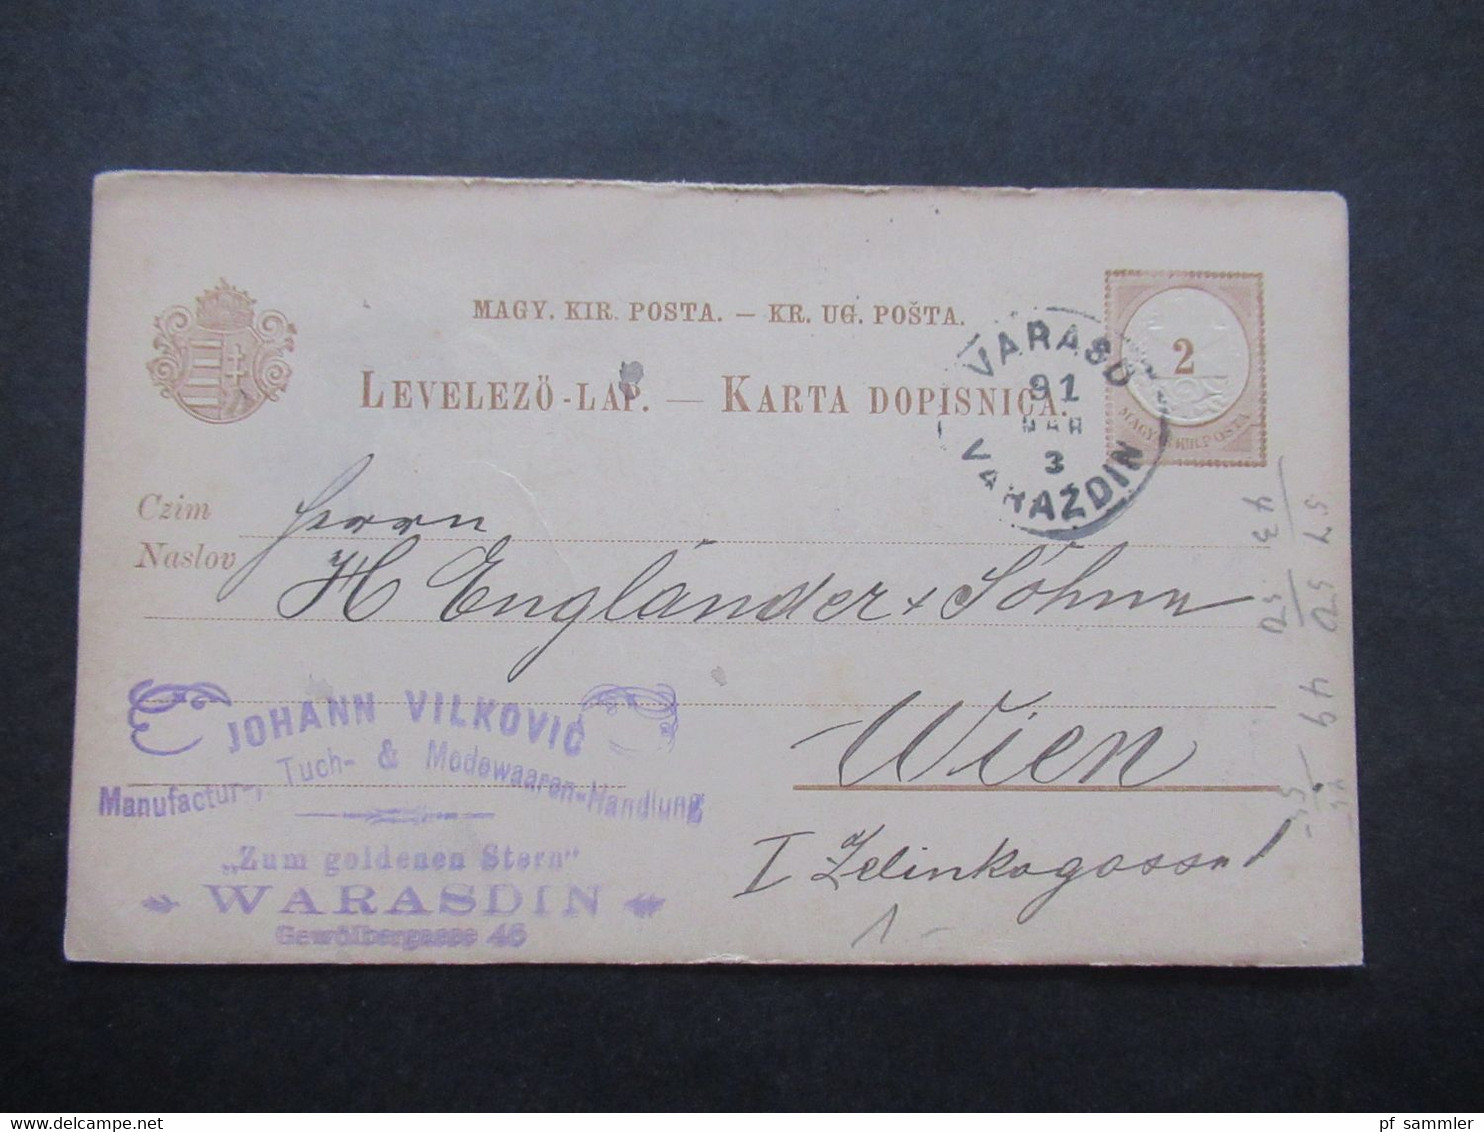 MAGY. KIR. POSTA. — KR. UG. POŠTA.
LEVELEZŐ-LAP. — KARTA DOPISNICA.
2
MAGYAR KIR. POSTA
VARASD
91
MAR
3
VARAŽDIN
Czim
Naslov
Herrn
H Engländer & Söhne
Wien
I Zelinkagasse 1
JOHANN VILKOVIĆ
Manufactur-, Tuch- & Modewaaren-Handlung
„Zum goldenen Stern“
WARASDIN
Gewölbergasse 46
43
57
50
50
49
pf sammler